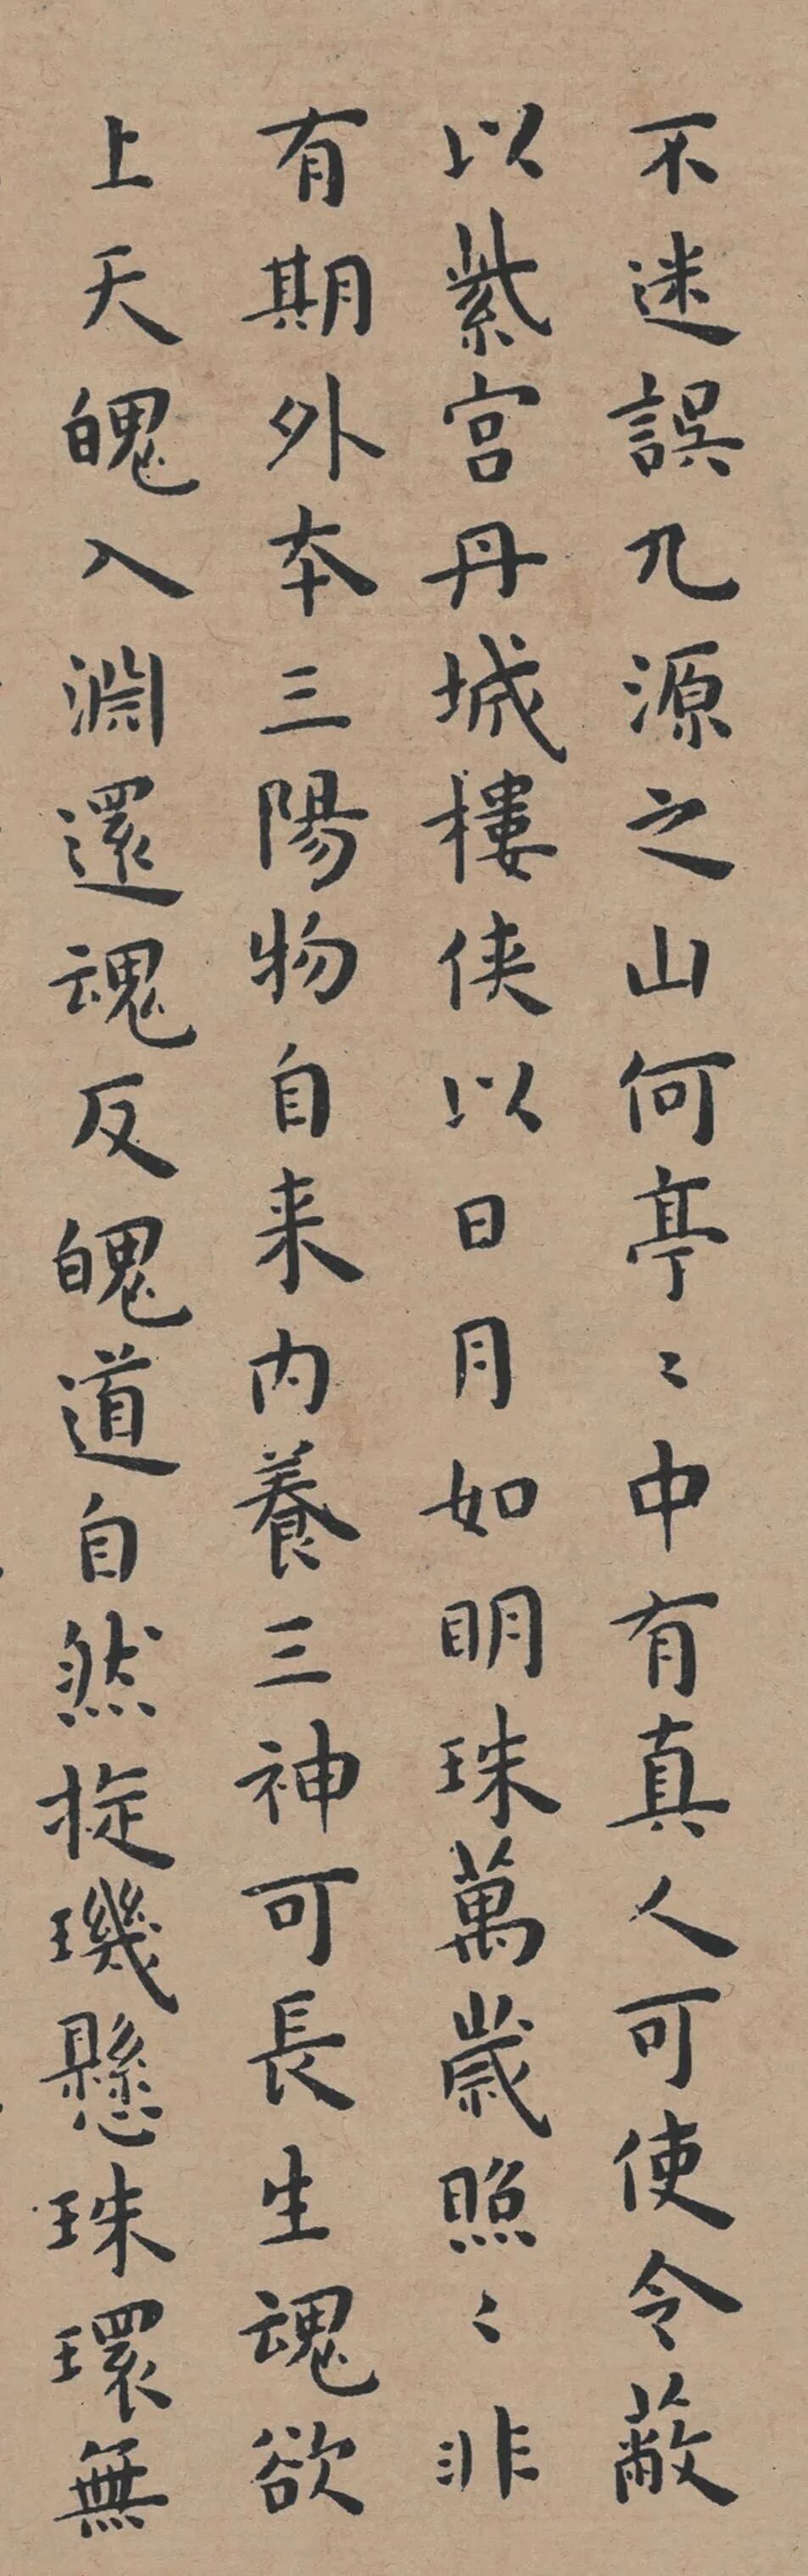 不迷誤九源之山何亭〻中有真人可使令蔽
以紫宫丹城樓俠以日月如明珠萬歲照〻非
有期外本三陽物自来内養三神可長生魂欲
上天魄入淵還魂反魄道自然㨁璣懸珠環無